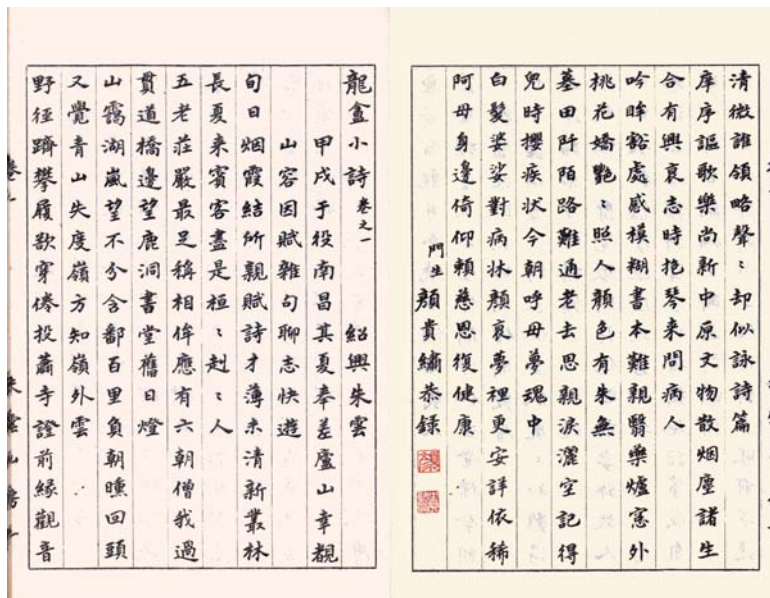 清微誰領略聲〻却似詠詩篇
庠序謳歌樂尚新中原文物散烟塵諸生
合有興哀志時抱琴来問病人
吟眸豁處感模糊書本難親醫藥爐窓外
桃花嬌艷照人顏色有朱無
墓田阡陌路難通老去思親淚灑空記得
兒時攖疾状今朝呼母夢魂中
白髮婆娑對病牀顏衰夢裡更安詳依稀
阿母身邊倚仰賴慈恩復健康
門生 顏貴繡恭錄
龍盦小詩 卷之一 紹興朱雲
甲戌于役南昌其夏奉差廬山幸覩
山容因賦雜句聊志快遊
旬日烟霞結所親賦詩才薄未清新叢林
長夏来賓客盡是桓〻赳〻人
五老莊嚴最足稱相侔應有六朝僧我過
貫道橋邊望鹿洞書堂舊日燈
山靄湖嵐望不分含鄱百里負朝曛回頭
又覺青山失度嶺方知嶺外雲
野徑躋攀履欲穿倦投蕭寺證前緣觀音